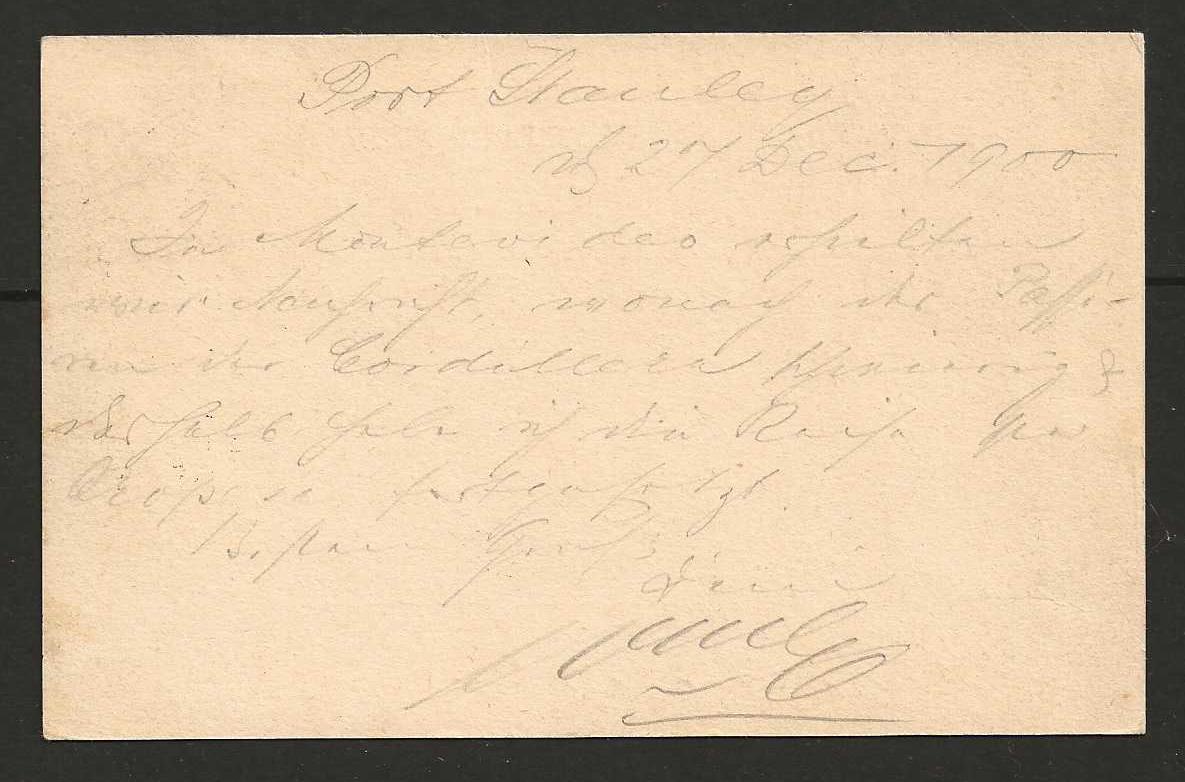 Port Stanley
d 27 Dec. 1900
In Montevideo erhielten
wir Nachricht, wonach der Passi-
ren der Cordilleren schwierig &
deshalb habe ich die Reise per
Oropesa fortgesetzt.
Besten Gruß
Dein